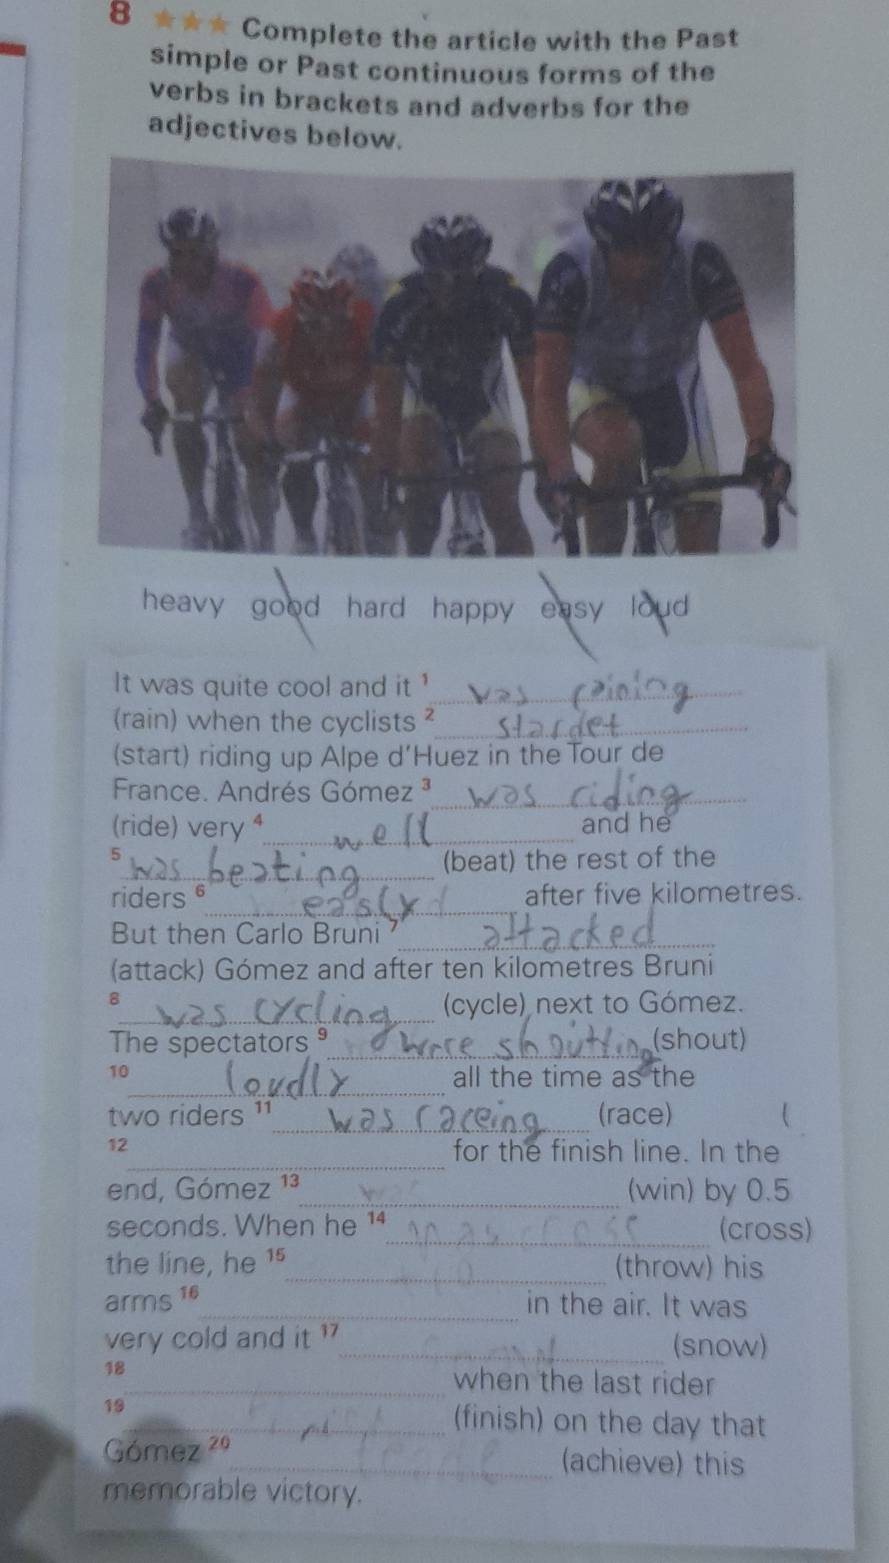 8 ★★★ Complete the article with the Past
simple or Past continuous forms of the
verbs in brackets and adverbs for the
adjectives below.
heavy good hard happy easy loud
It was quite cool and it ¹ was raining
(rain) when the cyclists ² stardet
(start) riding up Alpe d'Huez in the Tour de
France. Andrés Gómez ³ was riding
(ride) very ⁴ well and he
⁵ was beating (beat) the rest of the
riders ⁶ easly after five kilometres.
But then Carlo Bruni ⁷ attacked
(attack) Gómez and after ten kilometres Bruni
⁸ was cycling (cycle) next to Gómez.
The spectators ⁹ were shoutting (shout)
¹⁰ loudly all the time as the
two riders ¹¹ was raceing (race)
¹² for the finish line. In the
end, Gómez ¹³ (win) by 0.5
seconds. When he ¹⁴ (cross)
the line, he ¹⁵ (throw) his
arms ¹⁶ in the air. It was
very cold and it ¹⁷ (snow)
¹⁸ when the last rider
¹⁹ (finish) on the day that
Gómez ²⁰ (achieve) this
memorable victory.